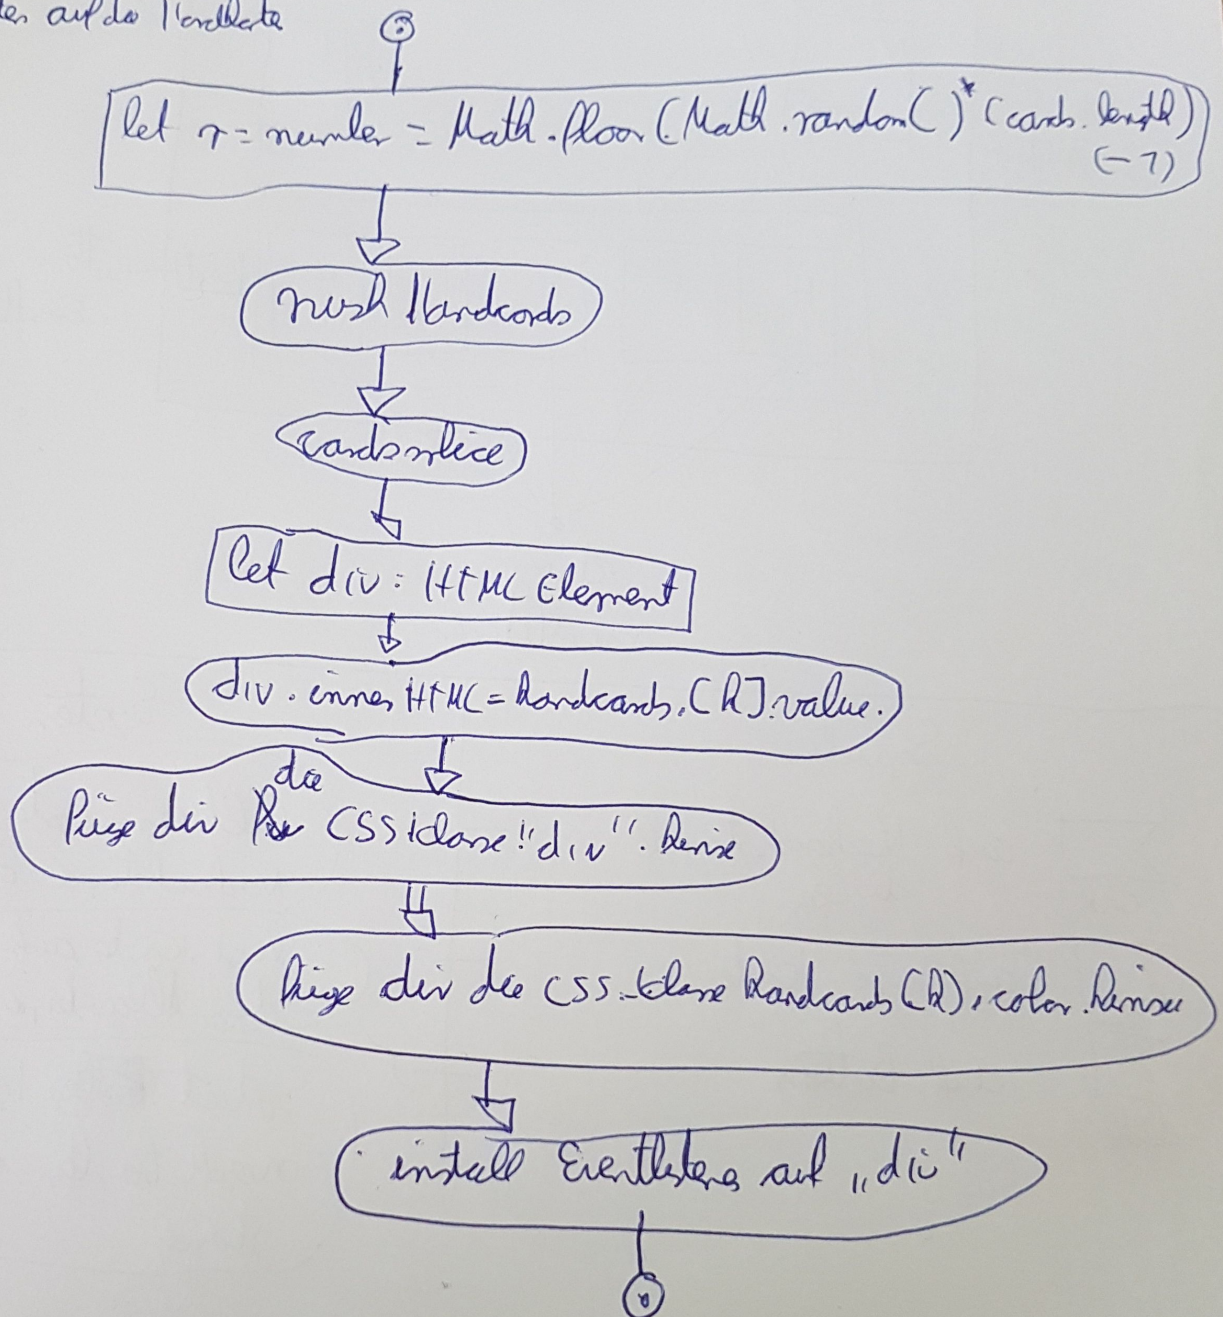 auf die Handkarte
let r = number = Math.floor(Math.random()*(cards.length)
(-1)
push Handcards
cards splice
let div: HTML Element
div.inner HTML = Handcards.[k].value.
Füge div die CSS klasse "div". hinzu
füge div die CSS-klasse Handcards(k).color.hinzu
install Eventlistener auf „div"